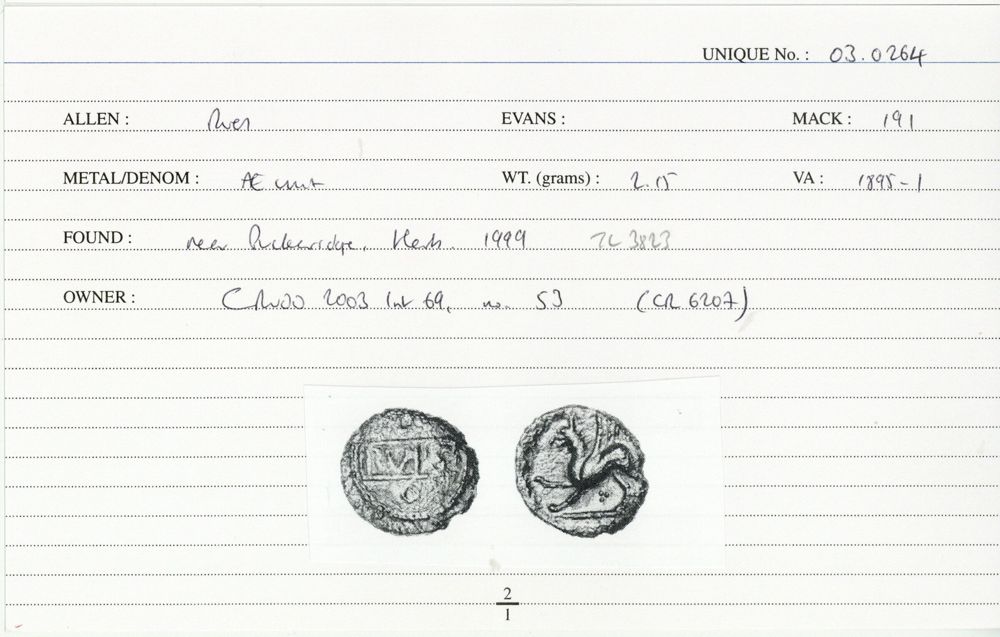 UNIQUE No. : 03.0264
ALLEN : Rues EVANS : MACK : 191
METAL/DENOM : Æ unit WT. (grams) : 2.15 VA : 1895-1
FOUND : near Puckeridge, Herts. 1999 TC 3823
OWNER : CRUDD 2003 list 69, no. 53 (CR 6207)
RVIS
2
1